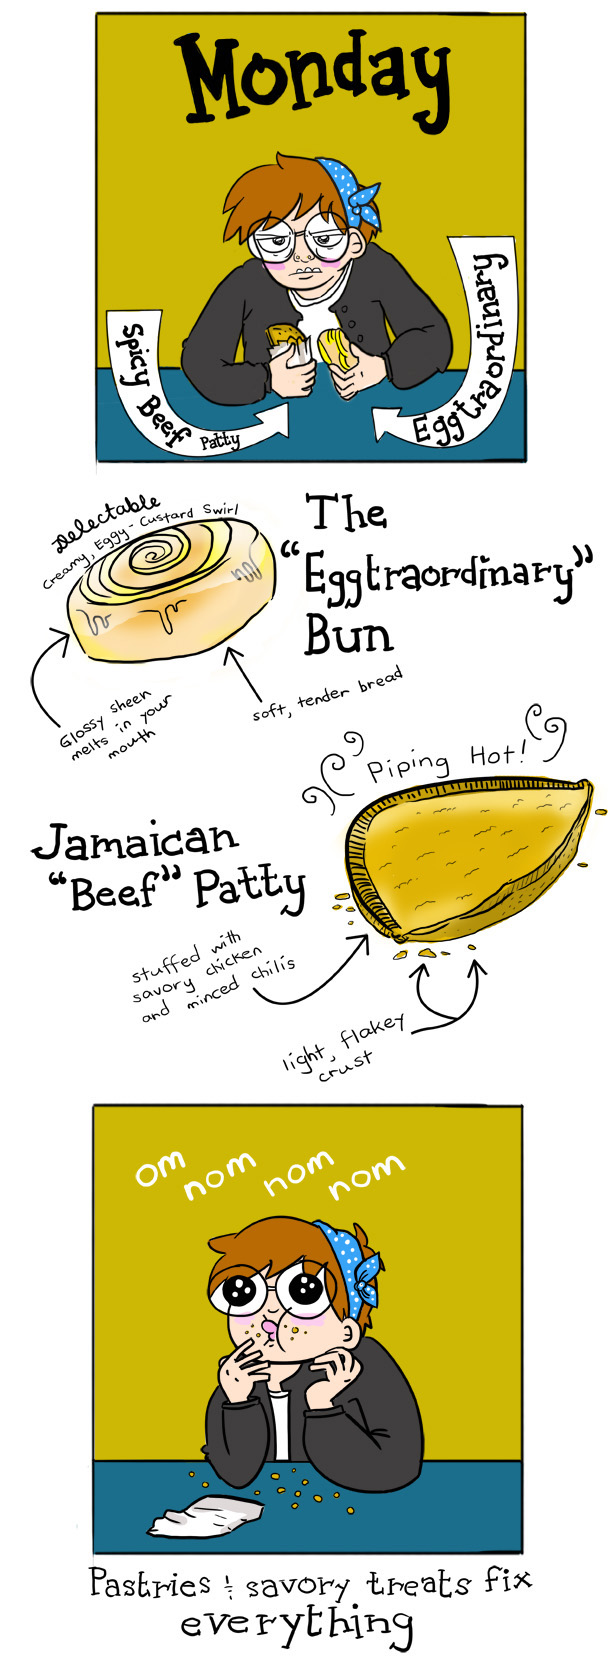 Monday
Spicy Beef Patty
Eggtraordinary
Delectable
Creamy, Eggy-Custard Swirl
The
"Eggtraordinary"
Bun
Glossy sheen
melts in your
mouth
soft, tender bread
Piping Hot!
Jamaican
"Beef" Patty
stuffed with
savory chicken
and minced chilis
light, flakey
crust
om nom nom nom
Pastries & savory treats fix
everything